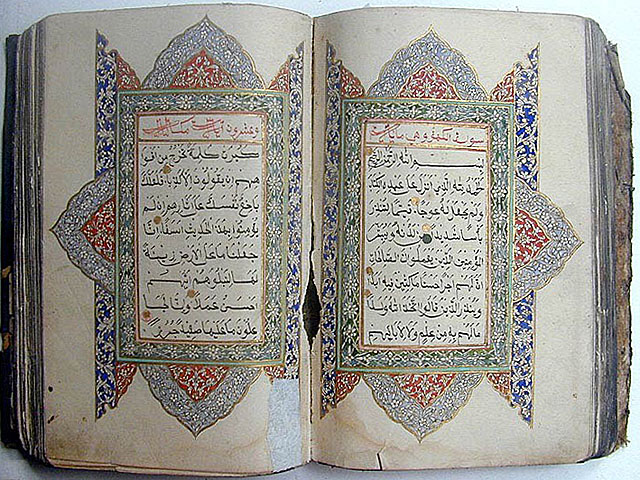 سورة الكهف وهي مائة
بسم الله الرحمن الرحيم
الحمد لله الذي انزل على عبده الكتاب
ولم يجعل له عوجا قيما لينذر
باسا شديدا من لدنه ويبشر
المؤمنين الذين يعملون الصالحات
ان لهم اجرا حسنا ماكثين فيه ابدا
وينذر الذين قالوا اتخذ الله ولدا
مالهم به من علم ولا لابائهم
وعشرون
كبرت كلمة تخرج من افوا
ههم ان يقولون الا كذبا فلعلك
باخع نفسك على اثارهم ان لم
يؤمنوا بهذا الحديث اسفا انا
جعلنا ما على الارض زينة
لها لنبلوهم ايهم
احسن عملا وانا لجا
علون ما عليها صعيدا جرزا